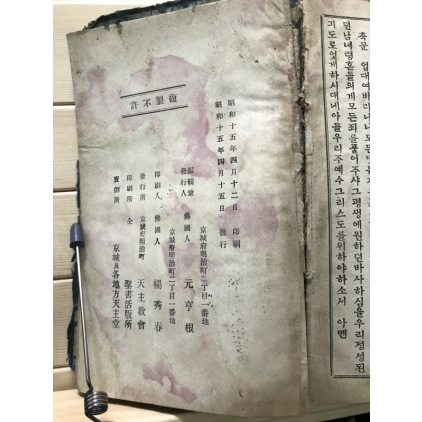 축문 업대여
던남녀령혼들의게모든죄를풀어주샤그평생에원하던바사하심을우리정성된
기도로엇게하시대네아들우리주예수그리스도를위하야하소서 아멘
複製不許
昭和十五年四月十二日 印刷
昭和十五年四月十五日 發行
京城府明治町二丁目一番地
編輯兼發行人 佛國人 元亨根
京城府明治町二丁目一番地
印刷人 佛國人 楊秀春
發行所 京城府明治町 天主敎會
印刷所 仝 聖書活版所
賣捌所 京城及各地方天主堂